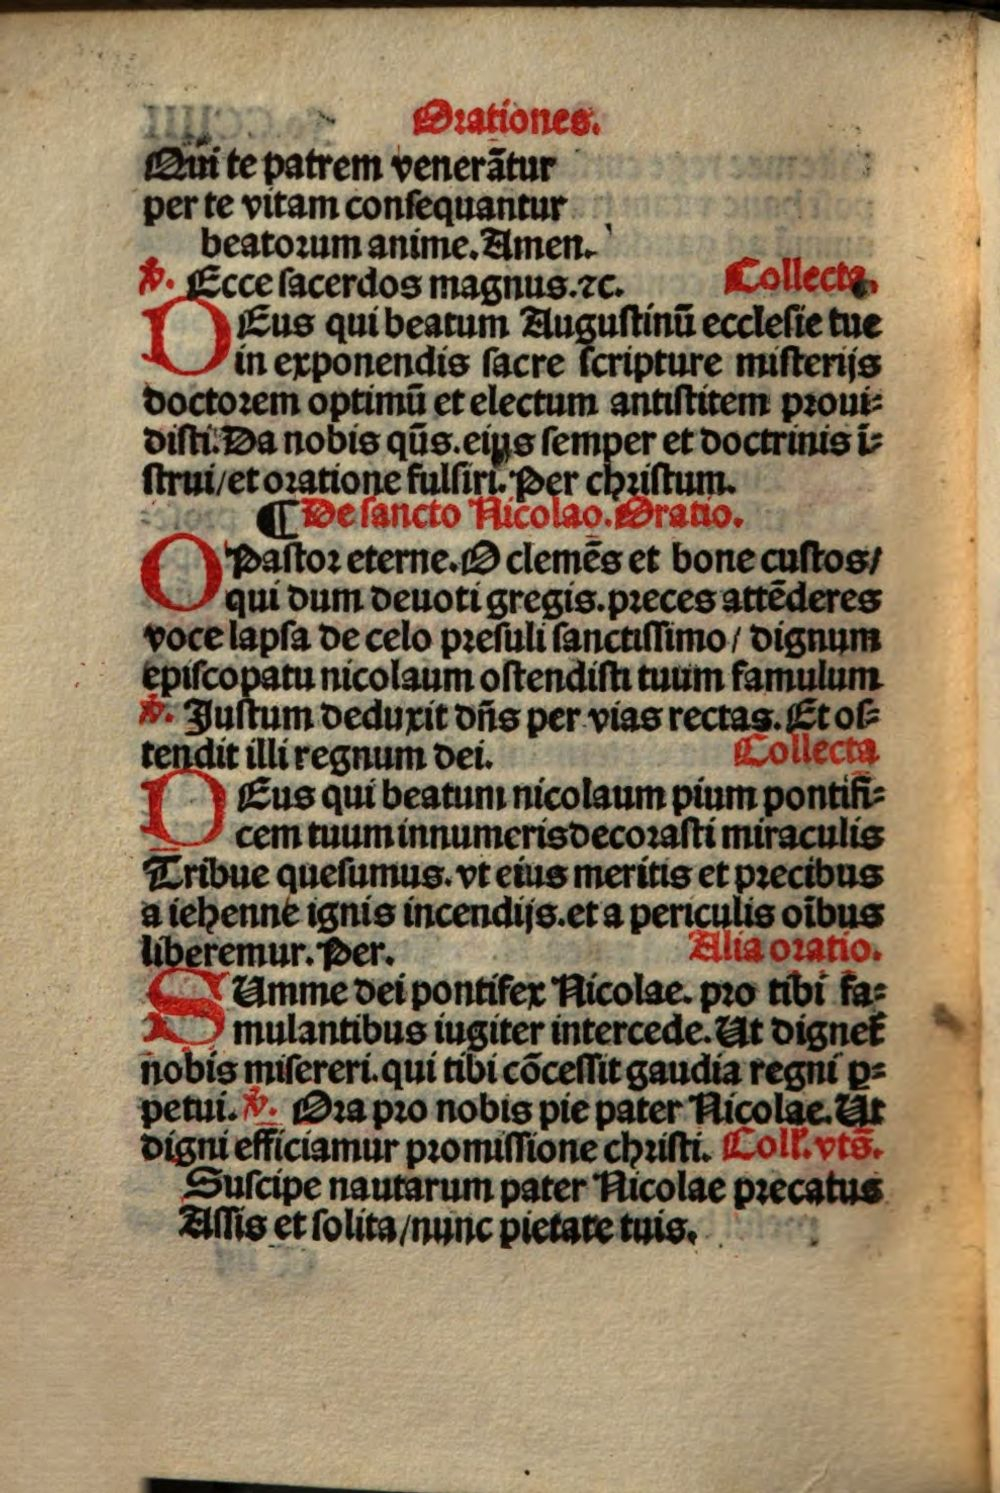 Orationes.
Qui te patrem venerãtur
per te vitam consequantur
beatorum anime. Amen.
℣. Ecce sacerdos magnus. ⁊c. Collecta.
DEus qui beatum Augustinũ ecclesie tue
in exponendis sacre scripture misterijs
doctorem optimũ et electum antistitem proui=
disti. Da nobis q̃us. eius semper et doctrinis ĩ=
strui/ et oratione fulsiri. Per christum.
¶ De sancto Nicolao. Oratio.
O Pastor eterne. O clemẽs et bone custos/
qui dum deuoti gregis. preces attẽderes
voce lapsa de celo presuli sanctissimo/ dignum
episcopatu nicolaum ostendisti tuum famulum
℣. Justum deduxit dñs per vias rectas. Et os=
tendit illi regnum dei. Collecta
DEus qui beatum nicolaum pium pontifi=
cem tuum innumeris decorasti miraculis
Tribue quesumus. vt eius meritis et precibus
a iehenne ignis incendijs. et a periculis oĩbus
liberemur. Per. Alia oratio.
SUmme dei pontifex Nicolae. pro tibi fa=
mulantibus iugiter intercede. Ut dignet̃
nobis misereri. qui tibi cõcessit gaudia regni ꝑ=
petui. ℣. Ora pro nobis pie pater Nicolae. Ut
digni efficiamur promissione christi. Coll. vts̃.
Suscipe nautarum pater Nicolae precatus
Assis et solita/ nunc pietate tuis.